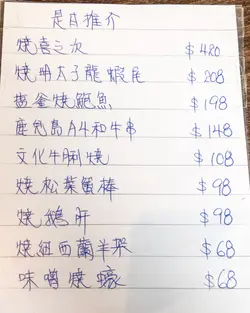 是日推介
燒喜之次 $420
燒明太子龍蝦尾 $208
岩釜燒鮑魚 $198
鹿兒島A4和牛串 $148
文化牛脷燒 $108
燒松葉蟹棒 $98
燒鵝肝 $98
燒紐西蘭羊架 $68
味噌燒蠔 $68